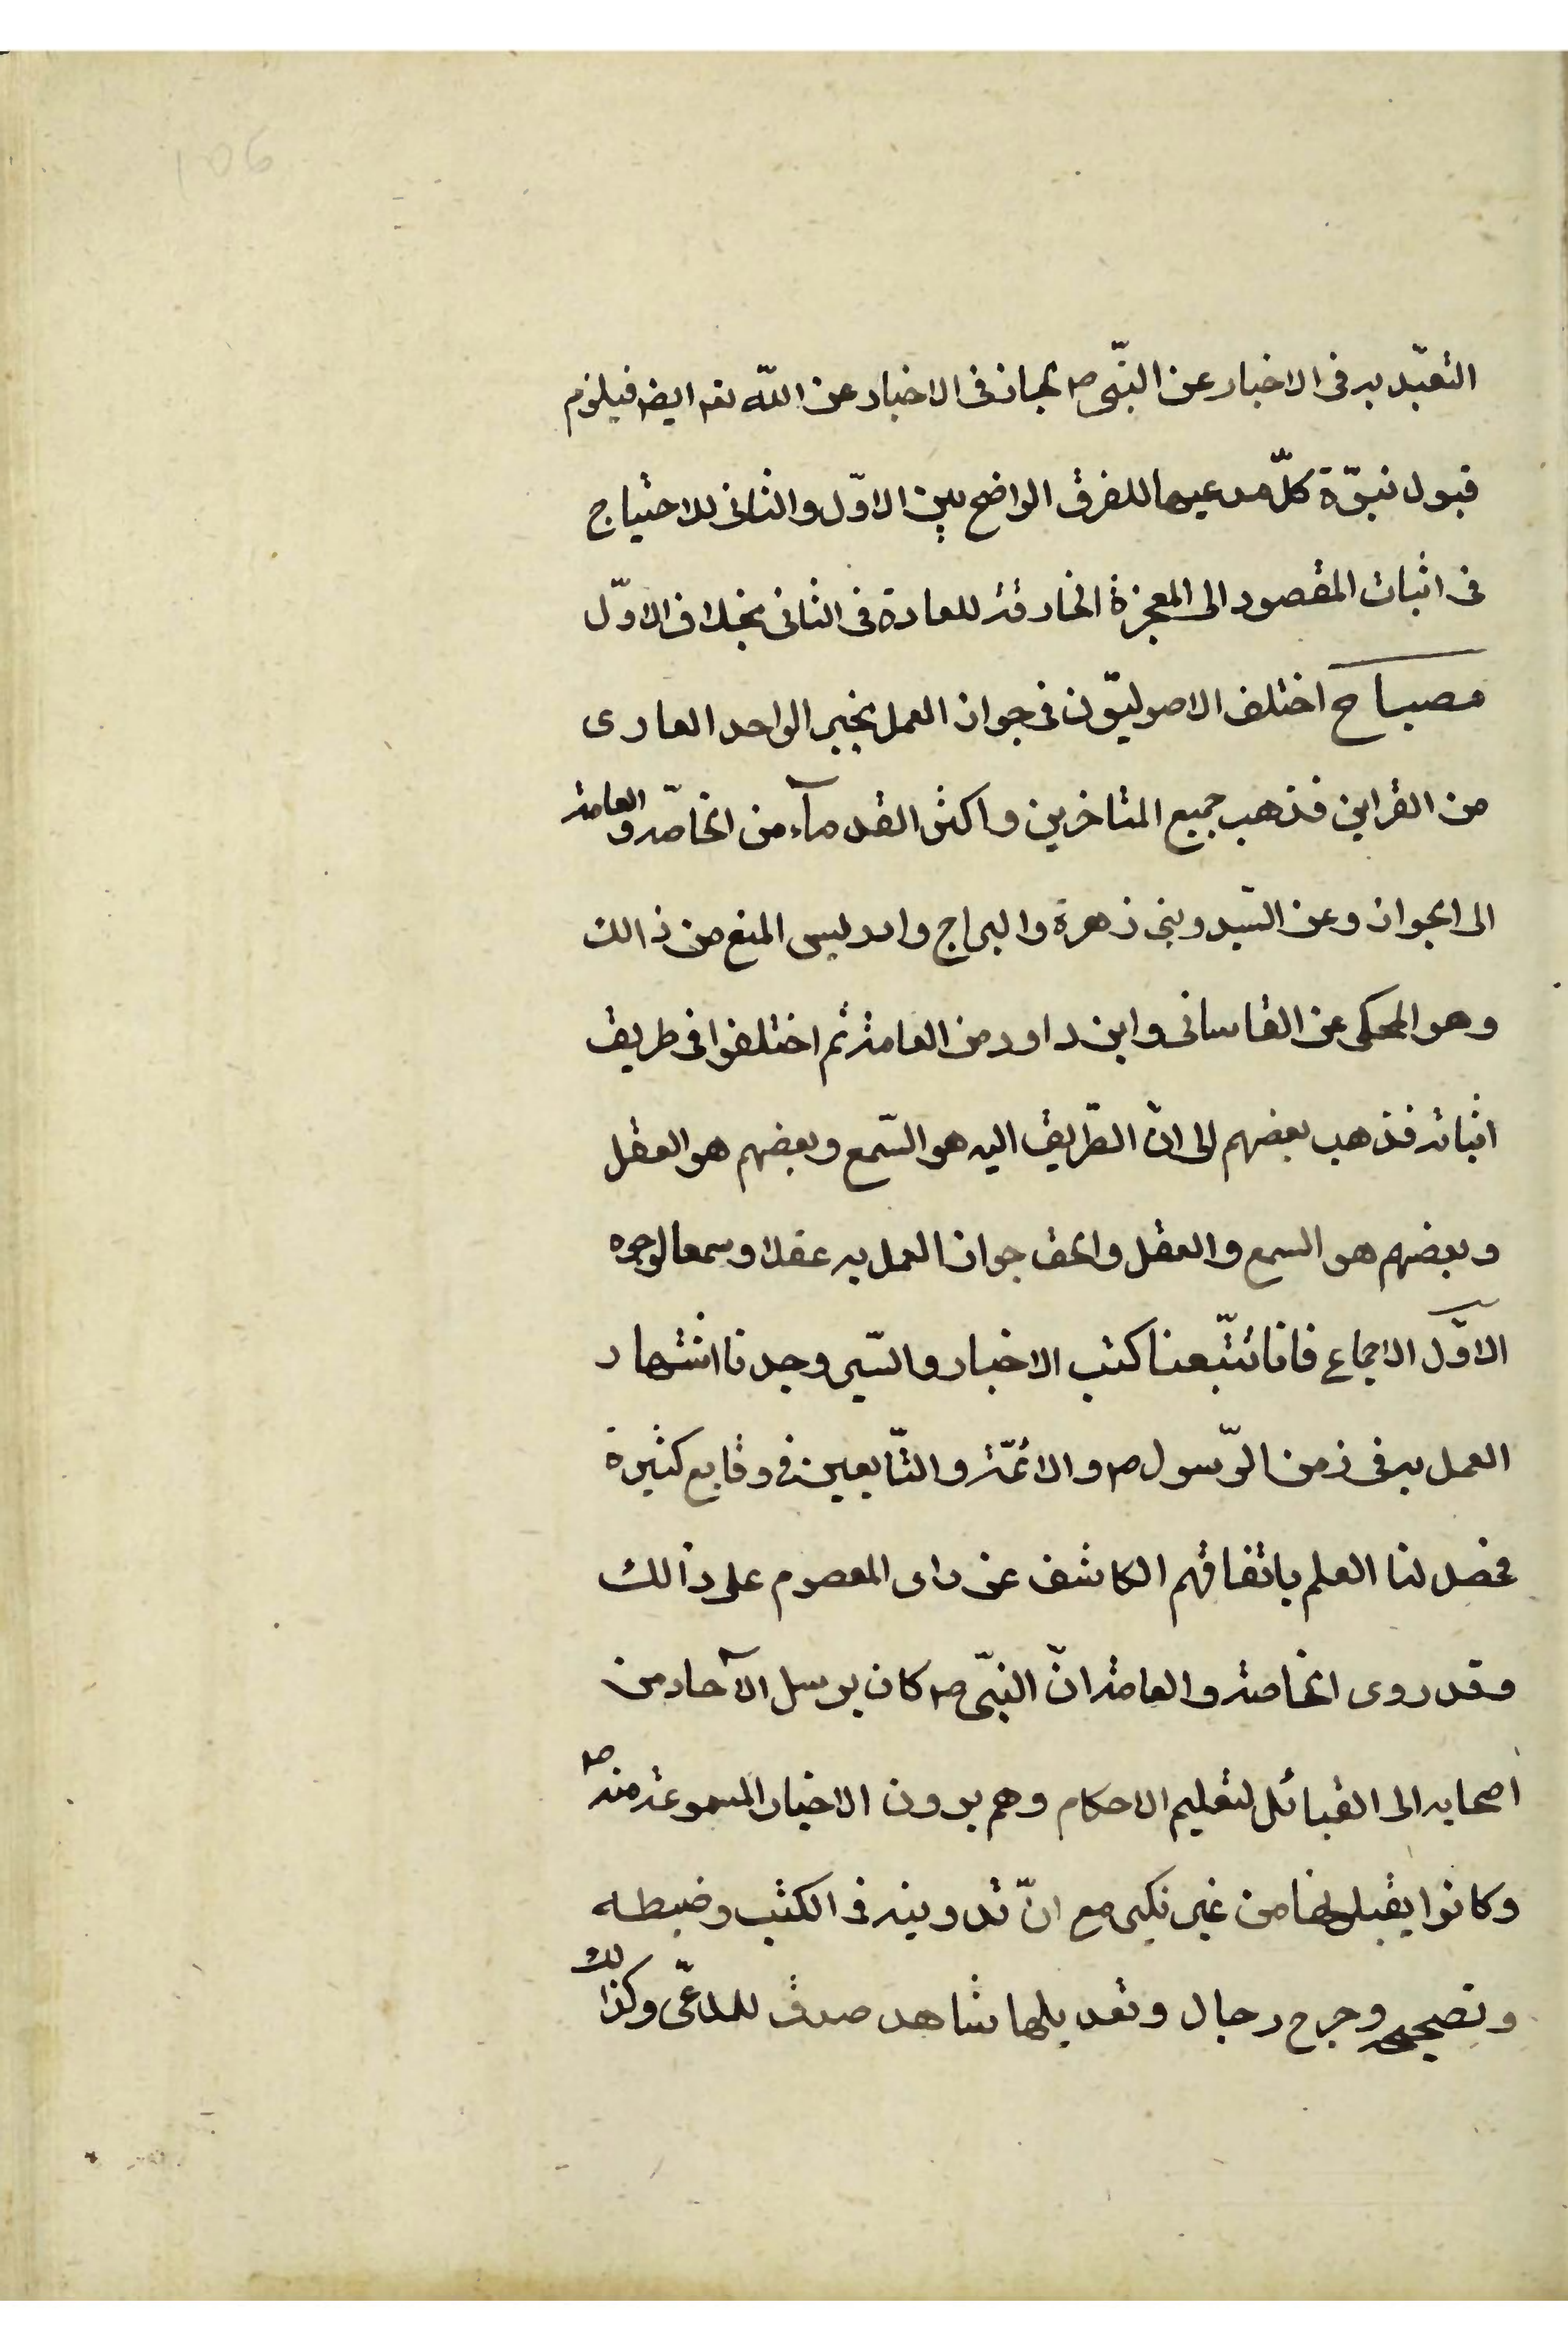 106
التعبّد به فى الاخبار عن النبّى ص لجاز فى الاخبار عن اللّه تعه ايضه فيلزم
قبول نبوّة كلّ مدعيها للفرق الواضح بين الاوّل والثانى للاحتياج
فى اثبات المقصود الى المعجزة الخارقة للعادة فى الثانى بخلاف الاوّل
مصباح اختلف الاصوليّون فى جواز العمل بخبر الواحد العارى
من القراين فذهب جميع المتاخرين واكثر القدمآء من الخاصّة والعامة
الى الجواز وعن السّيد وبنى زهرة والبراج وادريس المنع من ذالك
وهو المحكى عن القاسانى وابن داود من العامة ثم اختلفوا فى طريق
اثباته فذهب بعضهم الى انّ الطّريق اليه هو السّمع وبعضهم هو العقل
وبعضهم هو السمع والعقل والحق جواز العمل به عقلا وسمعا لوجوه
الاوّل الاجماع فانا تتّبعنا كتب الاخبار والسّير وجدنا اشتهار
العمل به فى زمن الرّسول ص والائمّة والتّابعين فى وقايع كثيرة
فحصل لنا العلم باتفاقهم الكاشف عن راى المعصوم على ذالك
وقد روى الخاصة والعامة انّ النبّى ص كان يرسل الآحاد من
اصحابه الى القبائل لتعليم الاحكام وهم يروون الاخبار المسموعة منه ص
وكانوا يقبلونها من غير نكير مع انّ تدوينه فى الكتب وضبطه
وتصحيحه وجرح رجال وتعديلها شاهد صدق للمدّعى وكذالك